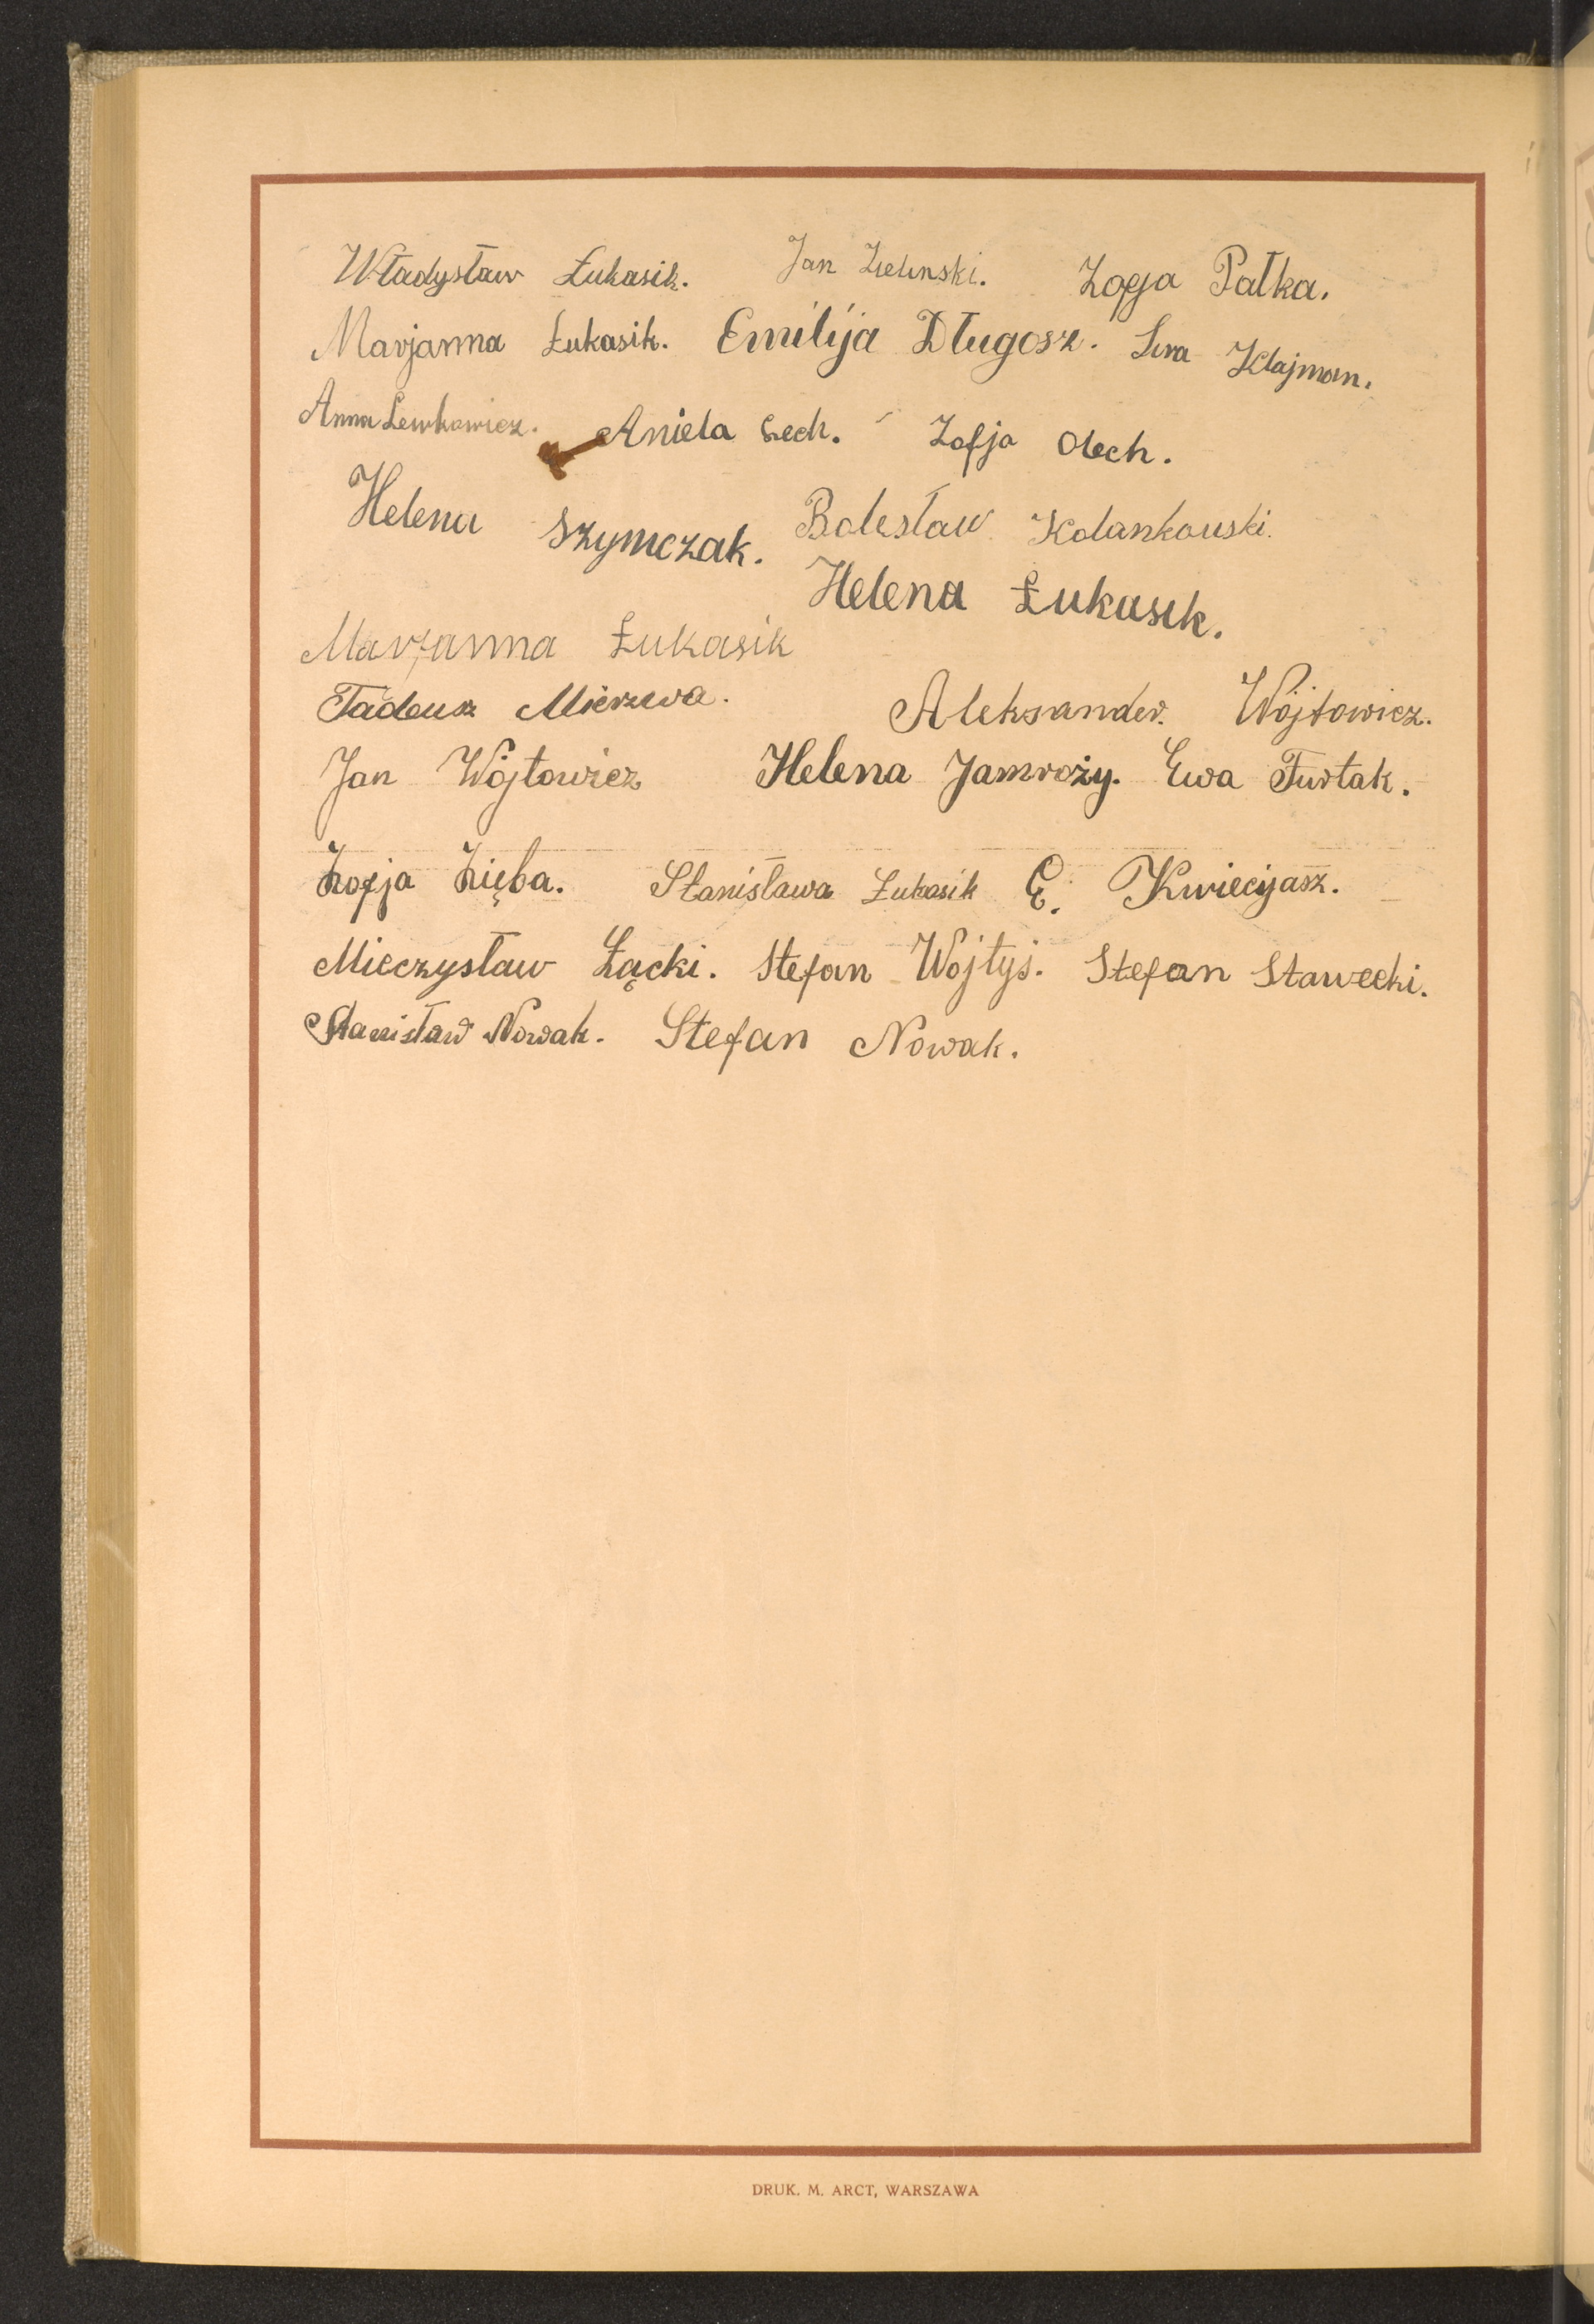 Władysław Łukasik. Jan Zielinski. Zofja Pałka.
Marjanna Łukasik. Emilija Długosz. Klajman.
Anna Lewkowicz. Aniela Cech. Zofja Olech.
Helena Szymczak. Bolesław Kolankowski.
Helena Łukasik.
Marjanna Łukasik
Tadeusz Mierzwa. Aleksander. Wójtowicz.
Jan Wójtowicz Helena Jamroży. Ewa Furtak.
Zofja Zięba. Stanisława Łukasik E. Kwiecijasz.
Mieczysław Łącki. Stefan Wójtyś. Stefan Stawecki.
Stanisław Nowak. Stefan Nowak.
DRUK. M. ARCT, WARSZAWA